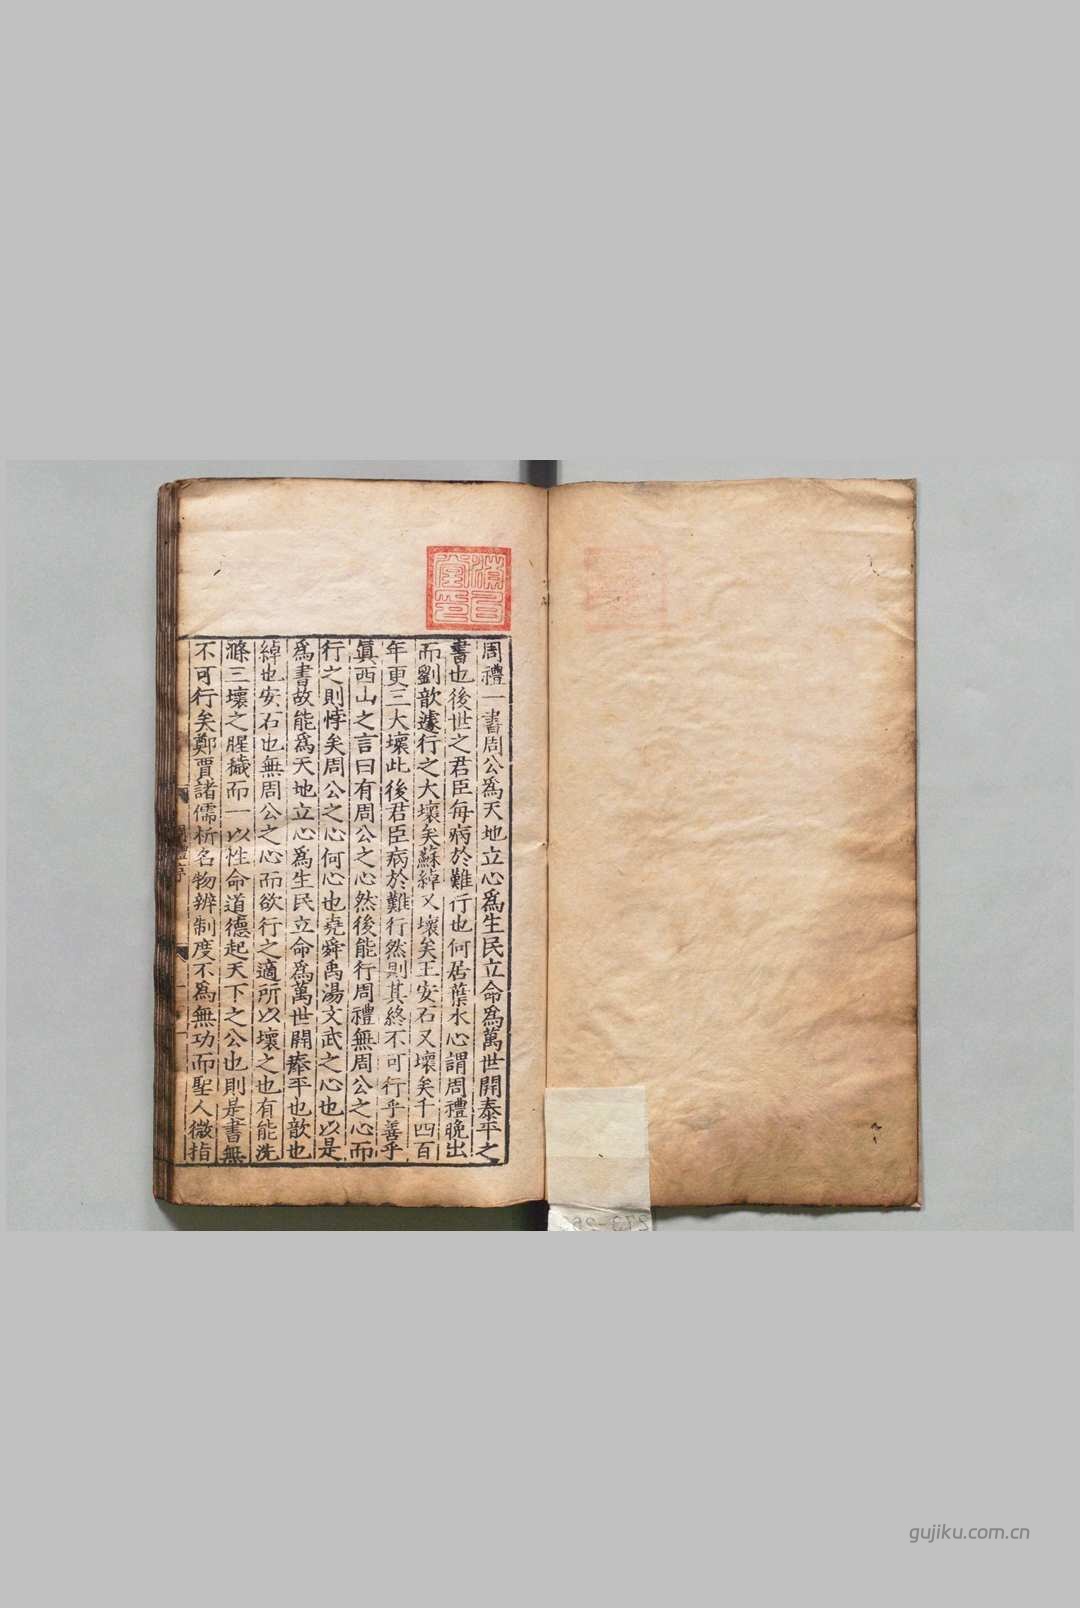 周禮一書周公爲天地立心爲生民立命爲萬世開泰平之
書也後世之君臣每病於難行也何居葉水心謂周禮晚出
而劉歆遽行之大壞矣蘇綽又壞矣王安石又壞矣千四百
年更三大壞此後君臣病於難行然則其終不可行乎善乎
眞西山之言曰有周公之心然後能行周禮無周公之心而
行之則悖矣周公之心何心也堯舜禹湯文武之心也以是
爲書故能爲天地立心爲生民立命爲萬世開泰平也歆也
綽也安石也無周公之心而欲行之適所以壞之也有能洗
滌三壞之腥穢而一以性命道德起天下之公也則是書無
不可行矣鄭賈諸儒析名物辨制度不爲無功而聖人微指
序
gujiku.com.cn